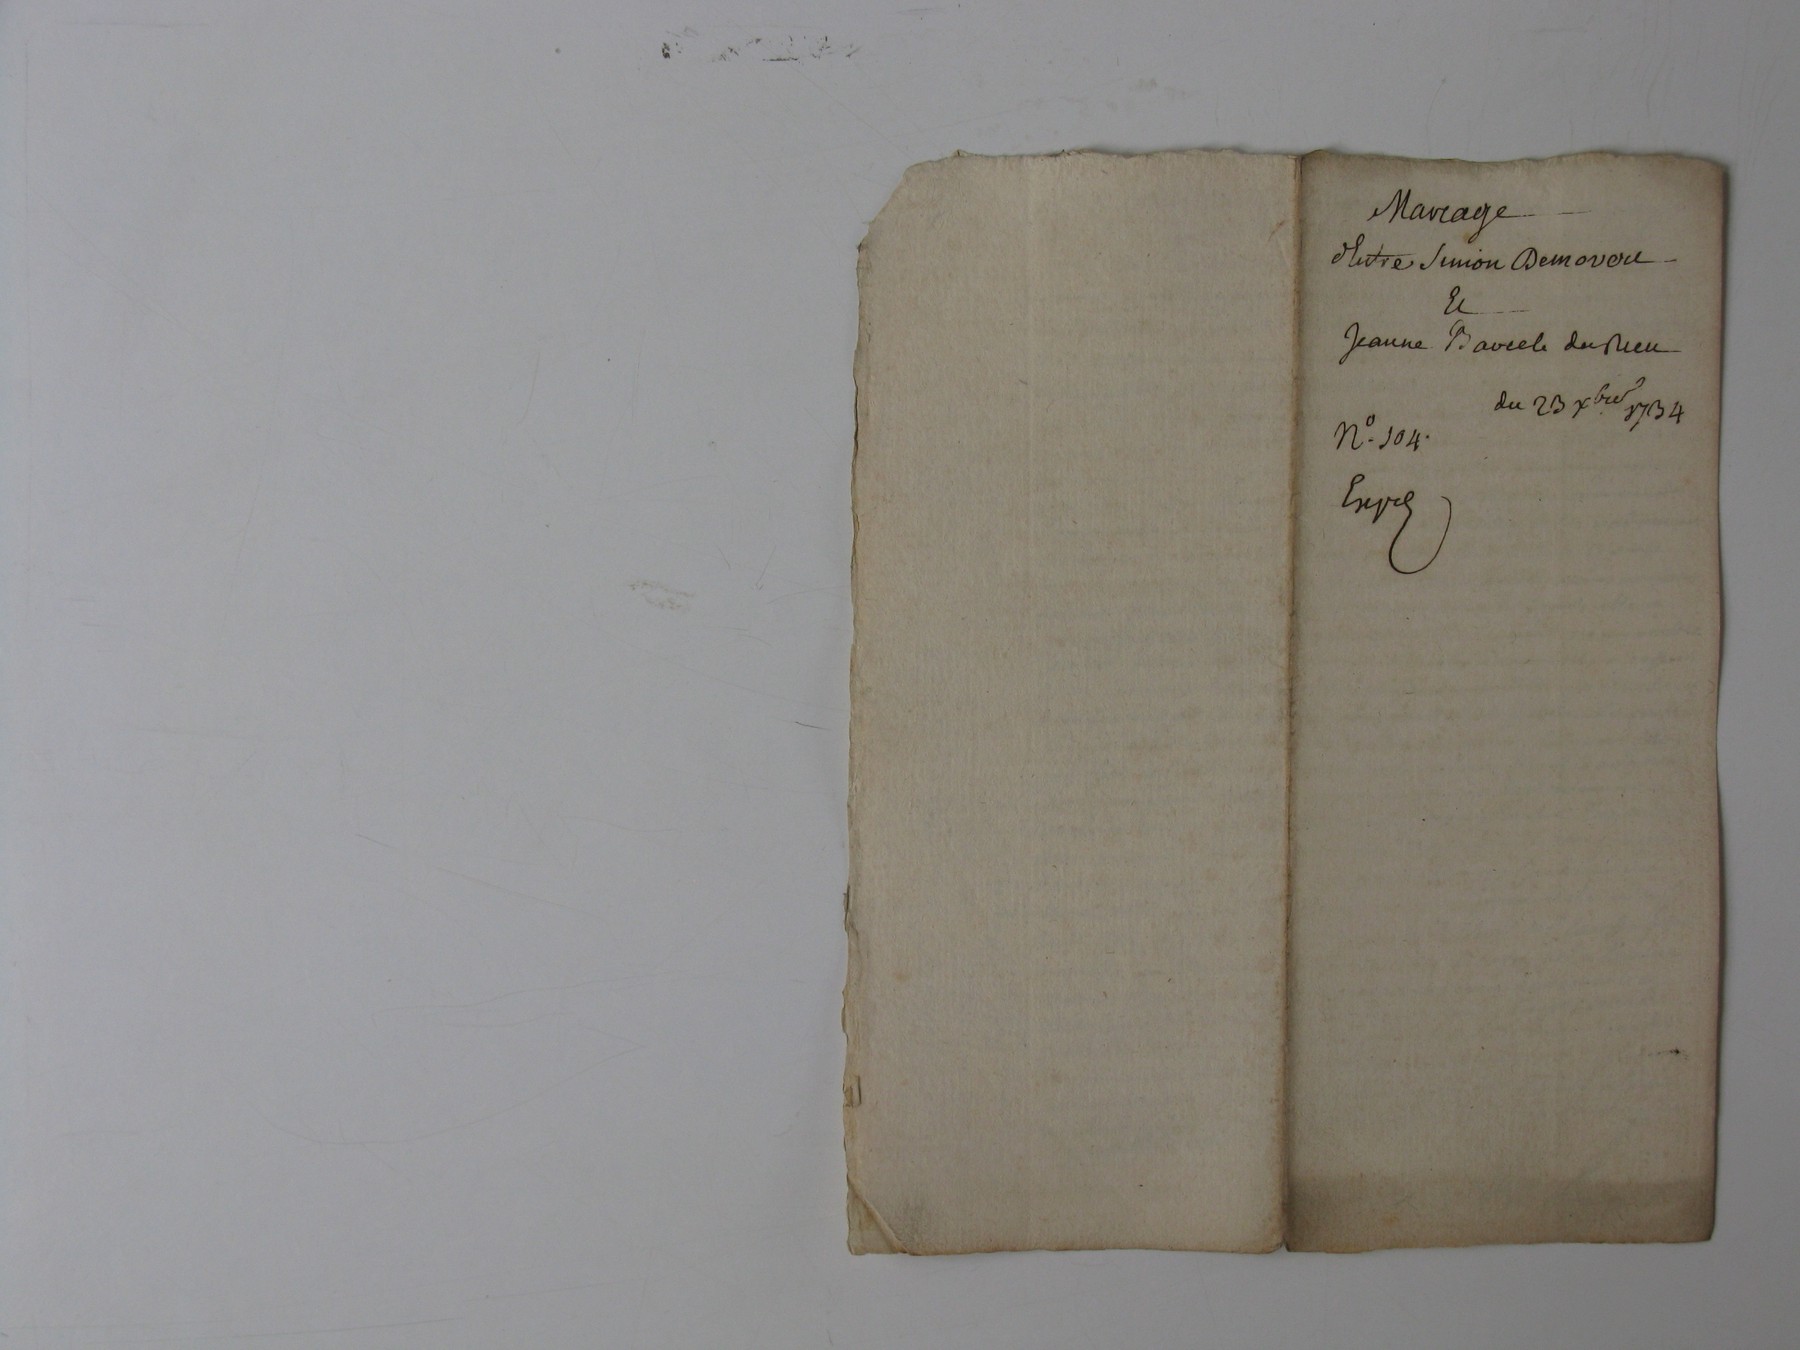 Mariage
d'Entre Simon Demoverl
Et
Jeanne Barcele durieu
du 23 xbre 1734
N° 104.
Expé